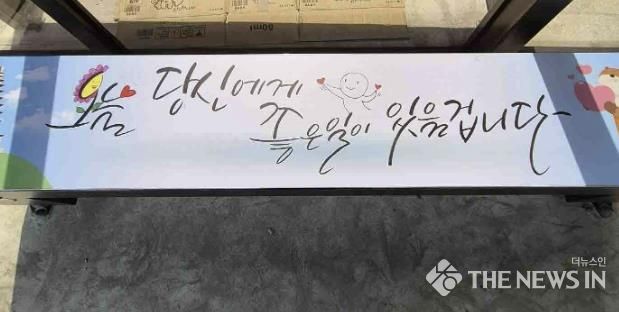 오늘 당신에게
좋은일이 있을겁니다
더뉴스인
THE NEWS IN